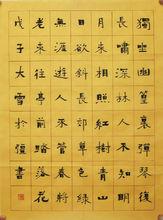 獨坐幽篁裏彈琴復
長嘯深林人不知明
月來相照紅樹青山
日欲斜長郊草色綠
無涯遊人不管春將
老來往亭前踏落花
戊子大雪於書